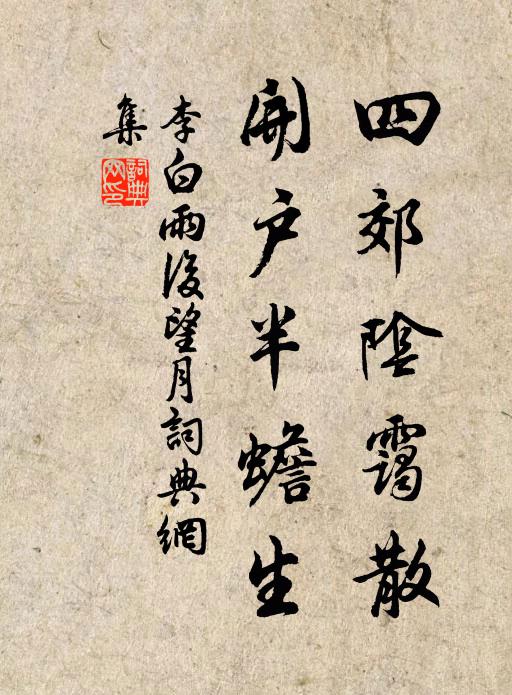 四郊陰靄散
開戶半蟾生
李白雨後望月詞典網
集
詞典網印